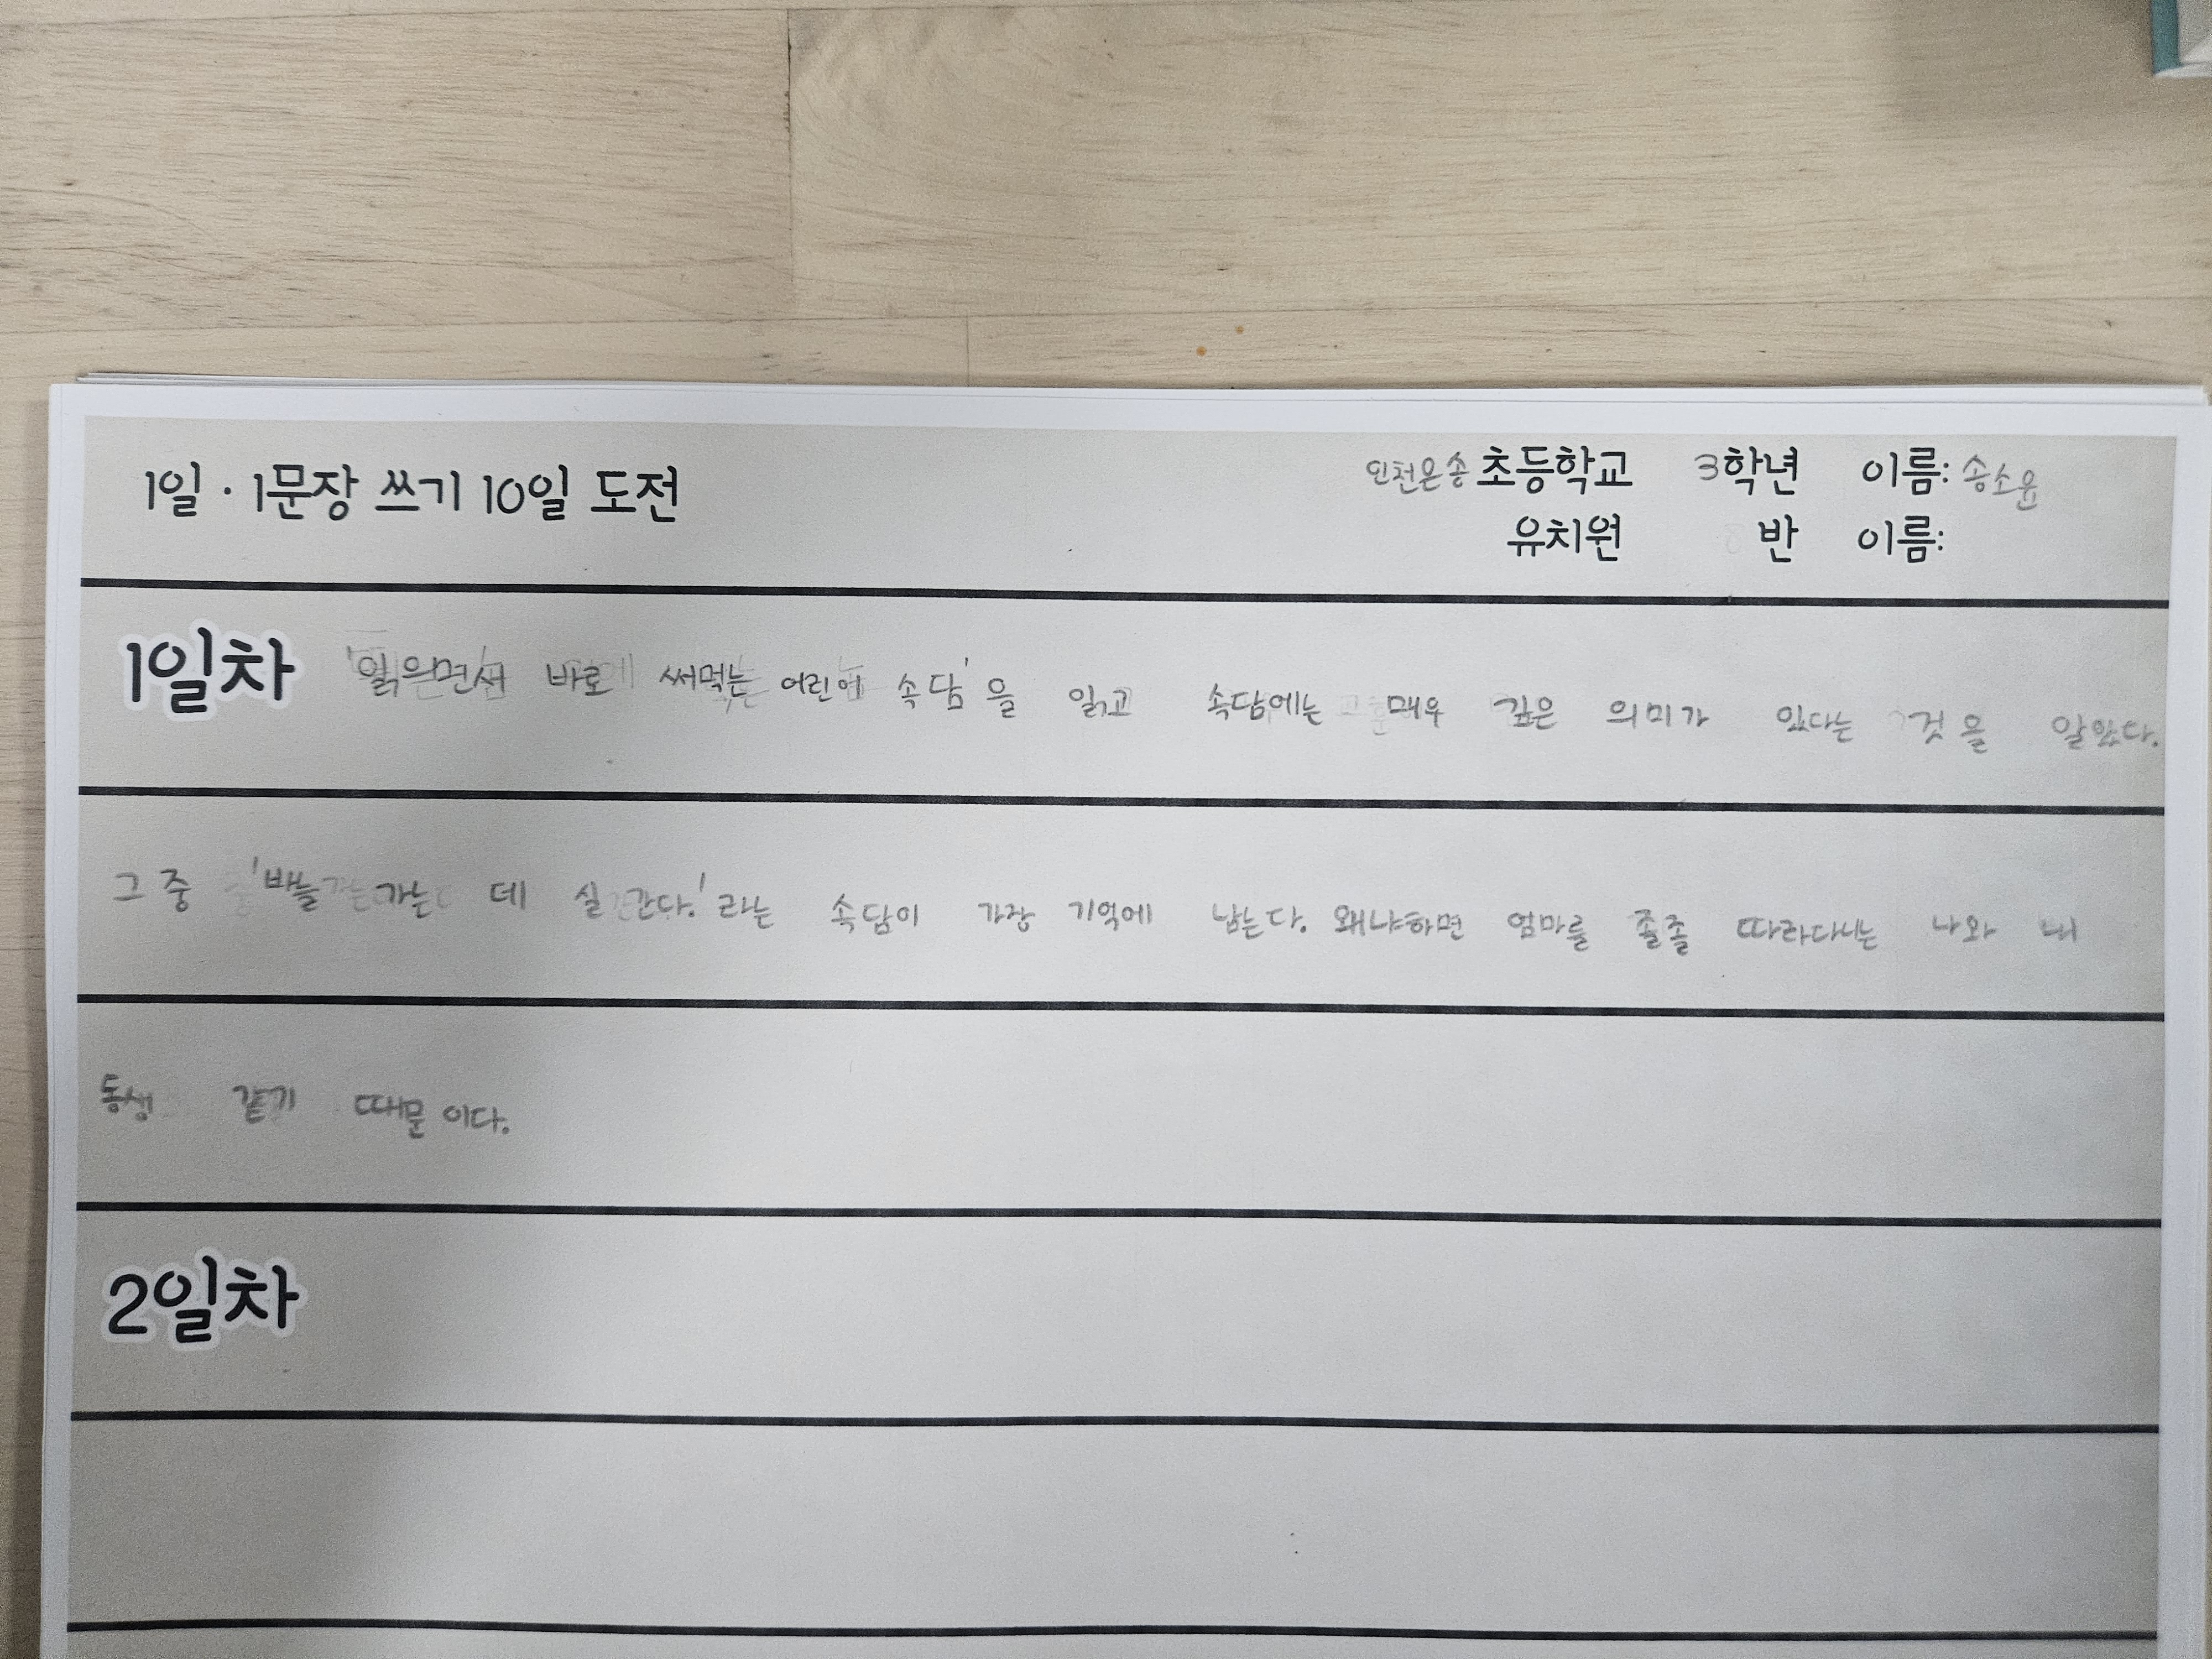 1일·1문장 쓰기 10일 도전
인천은송초등학교 3학년 이름: 송소윤
유치원 반 이름:
1일차 '읽으면서 바로 써먹는 어린이 속담'을 읽고 속담에는 매우 깊은 의미가 있다는 것을 알았다.
그 중 '바늘 가는 데 실 간다.'라는 속담이 가장 기억에 남는다. 왜냐하면 엄마를 졸졸 따라다니는 나와 내
동생 같기 때문이다.
2일차